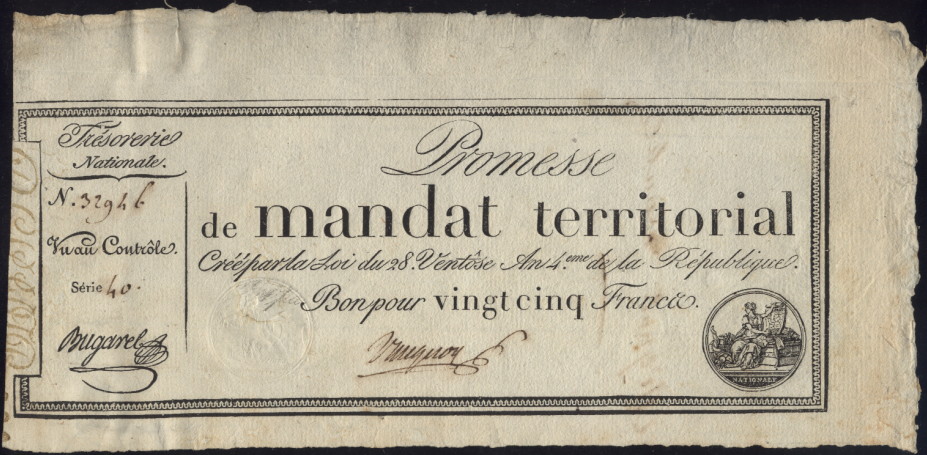 Trésorerie
Nationale.
N. 32946
Vu au Contrôle.
Série 40.
Bugarel
Promesse
de mandat territorial
Créé par la Loi du 28. Ventôse An 4.eme de la République.
Bon pour vingt cinq Francs.
NATIONALE